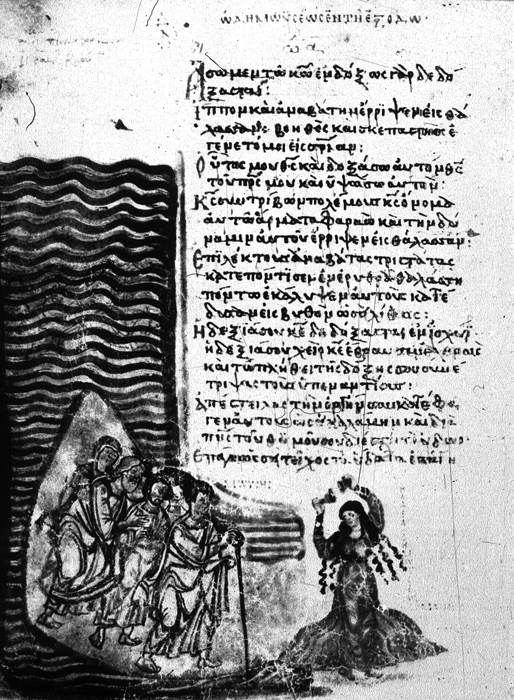 ὠδὴ Μωϋσέως ἐν τῇ ἐξόδω
ὠδ α
Ἄσωμεν τῶ κω ἐνδόξως γὰρ δεδό
ξασται:
ἵππον καὶ ἀναβάτην ἔρριψεν εἰς θά
λασσαν βοηθὸς καὶ σκεπαστὴς ἐ
γένετό μοι εἰς σρίαν:
Οὗτός μου θς καὶ δοξάσω αὐτὸν θς
τοῦ πρς μου καὶ ὑψώσω αὐτόν:
Κς συντρίβων πολέμους κς ὄνομα
αὐτῶ ἅρματα φαραὼ καὶ τὴν δύ
ναμιν αὐτοῦ ἔρριψεν εἰς θάλασσαν:
Ἐπιλέκτους ἀναβάτας τριστάτας
κατεπόντισεν ἐν ἐρυθρᾶ θαλάσση
πόντω ἐκάλυψεν αὐτοὺς κατέ
δυσαν εἰς βυθὸν ὡσεὶ λίθος:
Ἡ δεξιά σου κε δεδόξασται ἐν ἰσχύϊ
ἡ δεξιά σου χεὶρ κε ἔθραυσεν
καὶ τῶ πλήθει τῆς δόξης σου συνέ
τριψας τοὺς ὑπεναντίους:
Ἀπέστειλας τὴν ὀργήν σου κατέφα
γεν αὐτοὺς ὡς καλάμην καὶ διὰ
πνς τοῦ θυμοῦ σου διέστη τὸ ὕδωρ
Ἐπάγη ὡσεὶ τεῖχος τὰ ὕδατα ἐπάγη